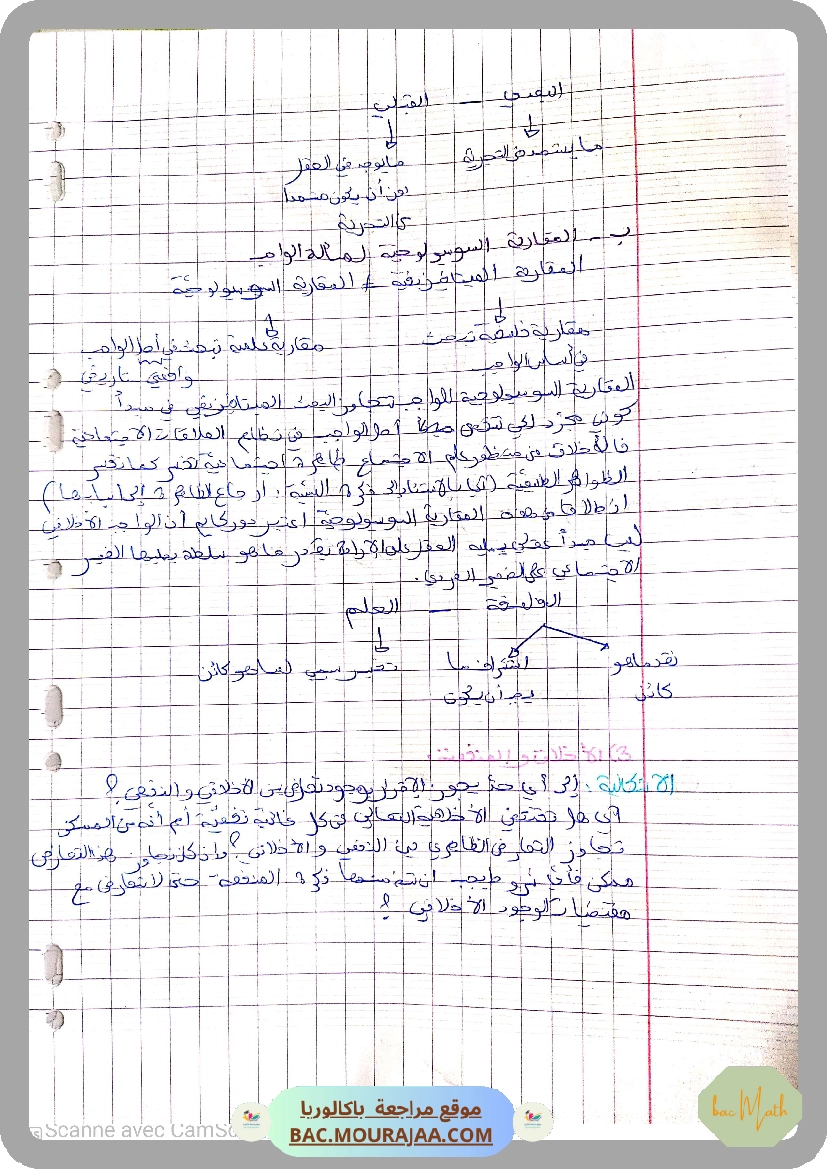 البعدي — القبلي
ما يستمد من التجربة
ما يوجد في العقل
دون أن يكون مستمدا
من التجربة
ب - المقاربة السوسولوجية لمسألة الواجب
المقاربة الميتافيزيقية ≠ المقاربة السوسيولوجية
مقاربة فلسفية تبحث
في أساس الواجب
مقاربة علمية تبحث في أصل الواجب
واقعي تاريخي
المقاربة السوسولوجية للواجب تتجاوز البحث الميتافيزيقي في مبدأ
كوني مجرد لكي تتقصى أصل الواجب في نظام العلاقات الاجتماعية
فالأخلاق من منظور علم الاجتماع ظاهرة اجتماعية تفسر كما تفسر
الظواهر الطبيعية (أي بالاستناد إلى فكرة السببية: ارجاع الظاهرة إلى أسبابها)
انطلاقا من هذه المقاربة السوسولوجية اعتبر دوركايم أن الواجب الأخلاقي
ليس مبدأ عقلي يمليه العقل على الإرادة بقدر ما هو سلطة يمليها الضمير
الاجتماعي على الضمير الفردي.
الفلسفة — العلم
نقد ما هو
كائن
استشراف ما
يجب أن يكون
تفسير سببي لما هو كائن
3) الأخلاق والمنفعة:
الاشكالية: إلى أي حد يجوز الإقرار بوجود تعارض بين الأخلاقي والنفعي؟
أي هل تقتضي الأخلاقية التعالي عن كل غائية نفعية أم أنه من الممكن
تجاوز التعارض الظاهري بين النفعي والأخلاقي؟ وإن كان تجاوز هذا التعارض
ممكن فأي شروط يجب ان تتضمنها فكرة المنفعة حتى لا تتعارض مع
مقتضيات الوجود الأخلاقي؟
موقع مراجعة باكالوريا
BAC.MOURAJAA.COM
bac Math
Scanné avec CamS